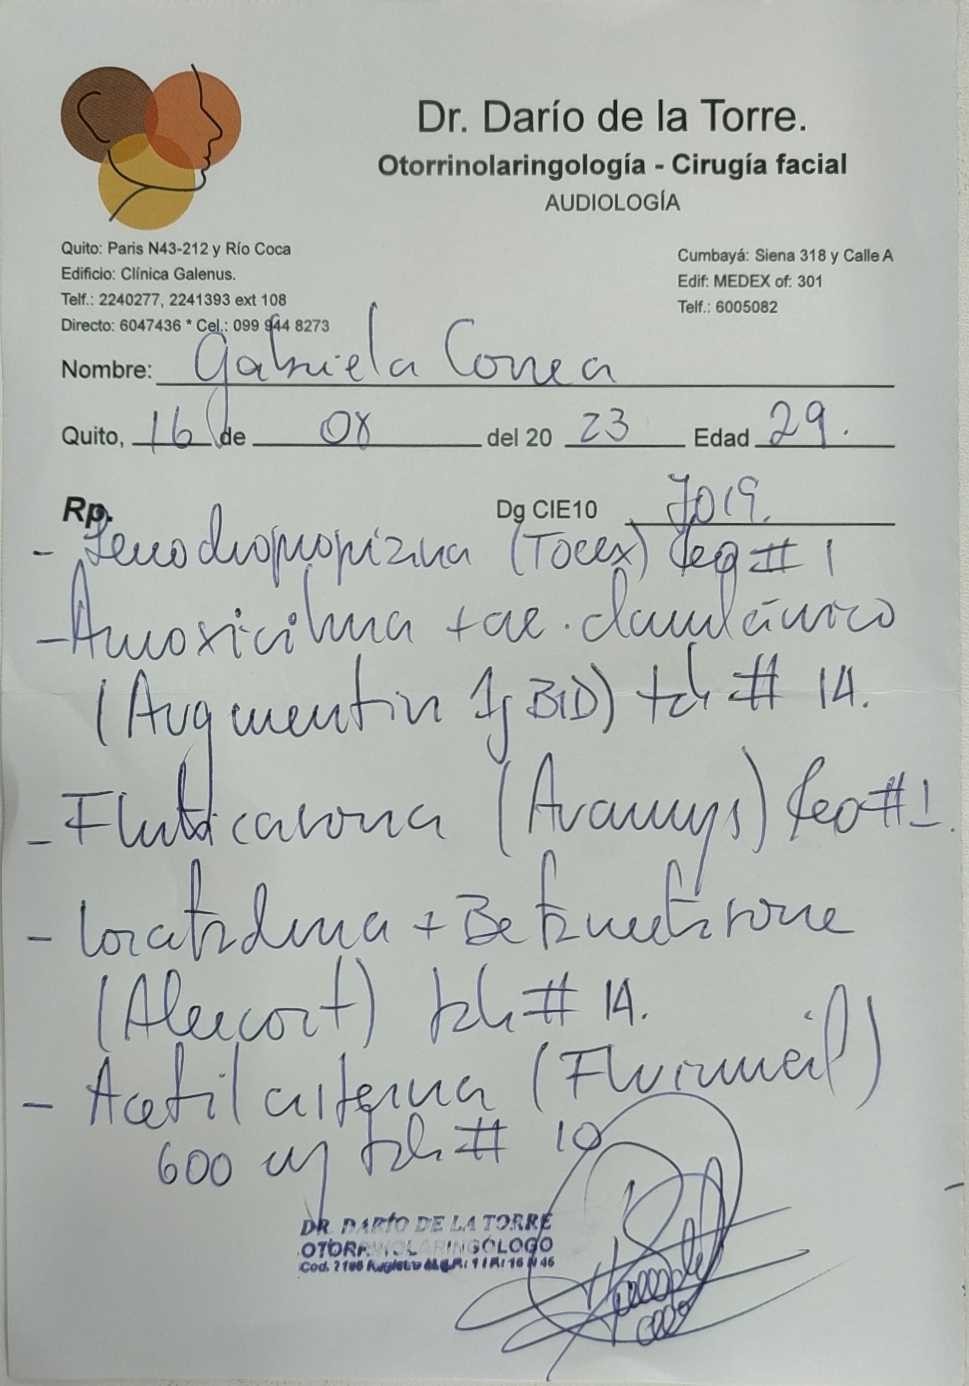 Dr. Darío de la Torre.
Otorrinolaringología - Cirugía facial
AUDIOLOGÍA
Quito: Paris N43-212 y Río Coca
Edificio: Clínica Galenus.
Telf.: 2240277, 2241393 ext 108
Directo: 6047436 * Cel.: 099 944 8273
Cumbayá: Siena 318 y Calle A
Edif: MEDEX of: 301
Telf.: 6005082
Nombre: Gabriela Correa
Quito, 16 de 08 del 20 23 Edad 29.
Rp. Dg CIE10 J019.
- Levodropropizina (Tocex) fco # 1
- Amoxicilina + ac. clavulánico
(Augmentin 1g BID) tab # 14.
- Fluticasona (Avamys) fco # 1.
- Loratadina + Betametasona
(Alercort) tab # 14.
- Acetilcisteina (Fluimucil)
600 mg tab # 10
DR. DARÍO DE LA TORRE
OTORRINOLARINGÓLOGO